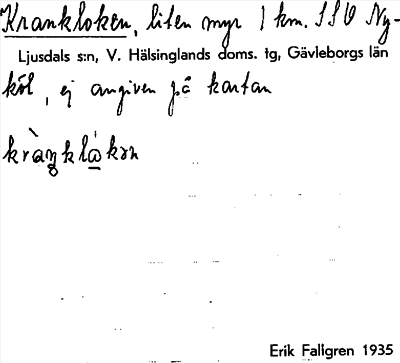 Krankloken, liten myr 1 km. SSO Ny-
Ljusdals s:n, V. Hälsinglands doms. tg, Gävleborgs län
köl, ej angiven på kartan
kràŋklå̀kən
Erik Fallgren 1935